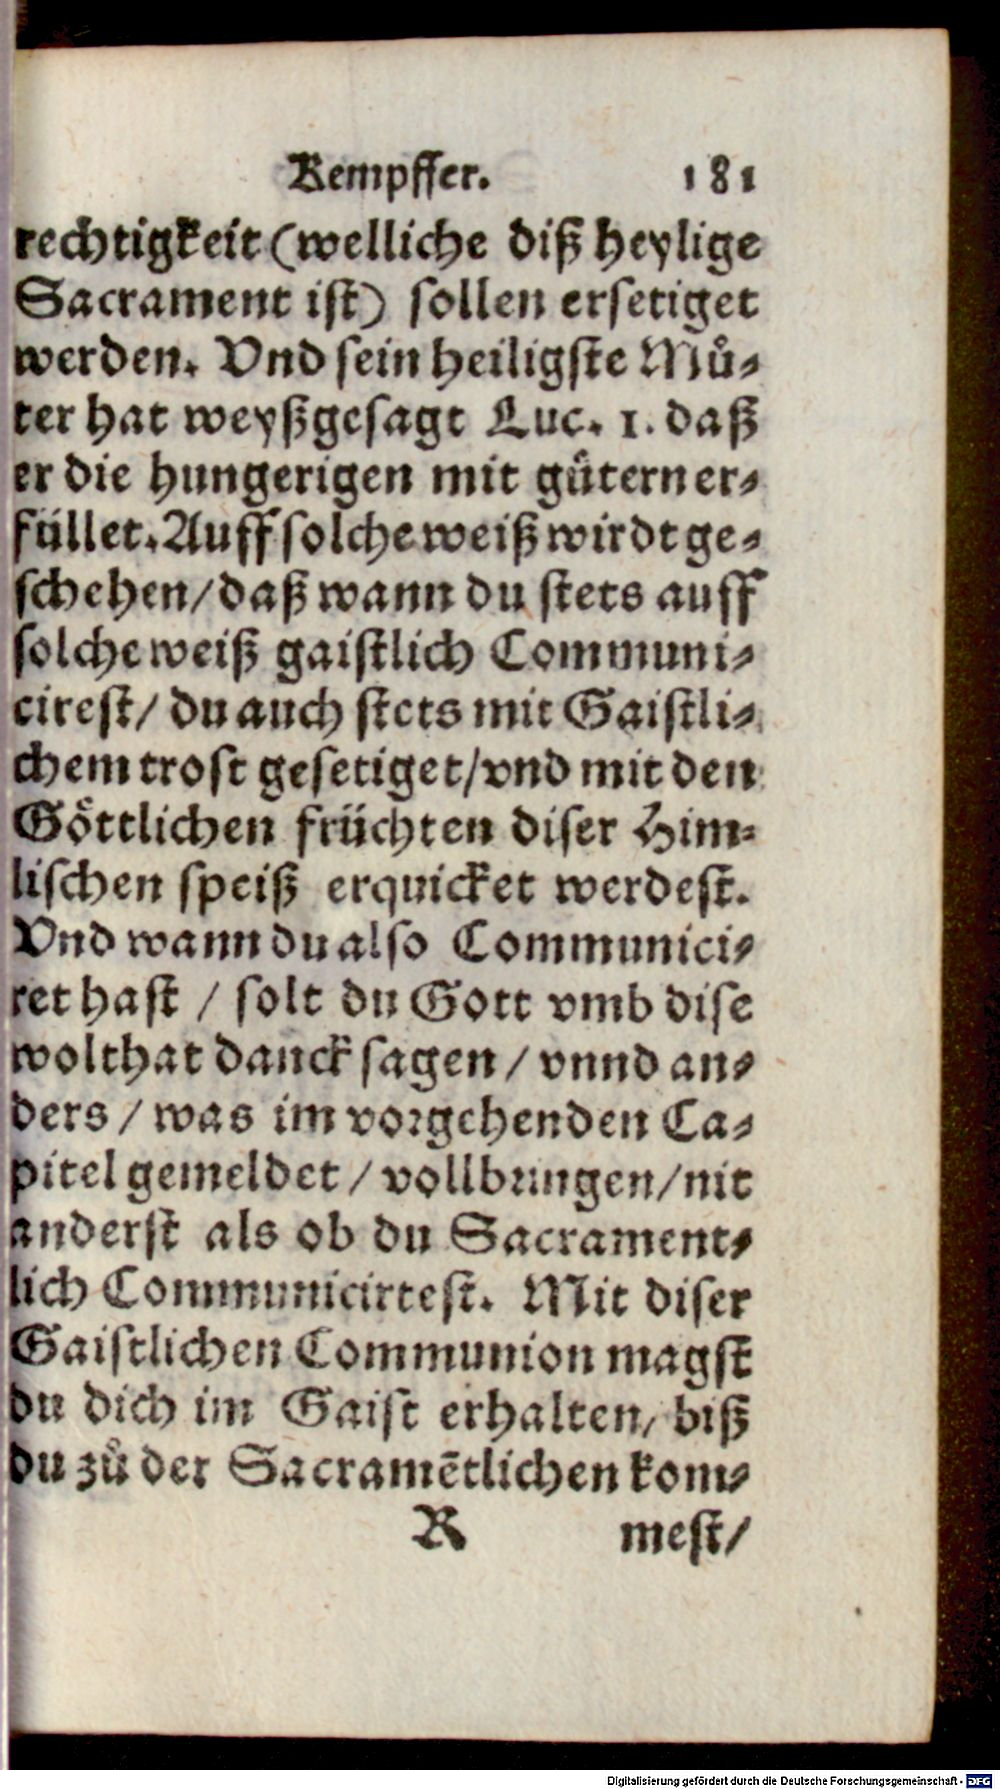 Kempffer. 181
rechtigkeit (welliche diß heylige
Sacrament ist) sollen ersetiget
werden. Vnd sein heiligste Mů-
ter hat weyßgesagt Luc. 1. daß
er die hungerigen mit gütern er-
füllet. Auff solche weiß wirdt ge-
schehen/ daß wann du stets auff
solche weiß gaistlich Communi-
cirest/ du auch stets mit Gaistli-
chem trost gesetiget/ vnd mit den
Göttlichen früchten diser Him-
lischen speiß erquicket werdest.
Vnd wann du also Communici-
ret hast / solt du Gott vmb dise
wolthat danck sagen / vnnd an-
ders / was im vorgehenden Ca-
pitel gemeldet / vollbringen/ nit
anderst als ob du Sacrament-
lich Communicirtest. Mit diser
Gaistlichen Communion magst
du dich im Gaist erhalten/ biß
du zů der Sacramẽtlichen kom-
R mest/
Digitalisierung gefördert durch die Deutsche Forschungsgemeinschaft - DFG